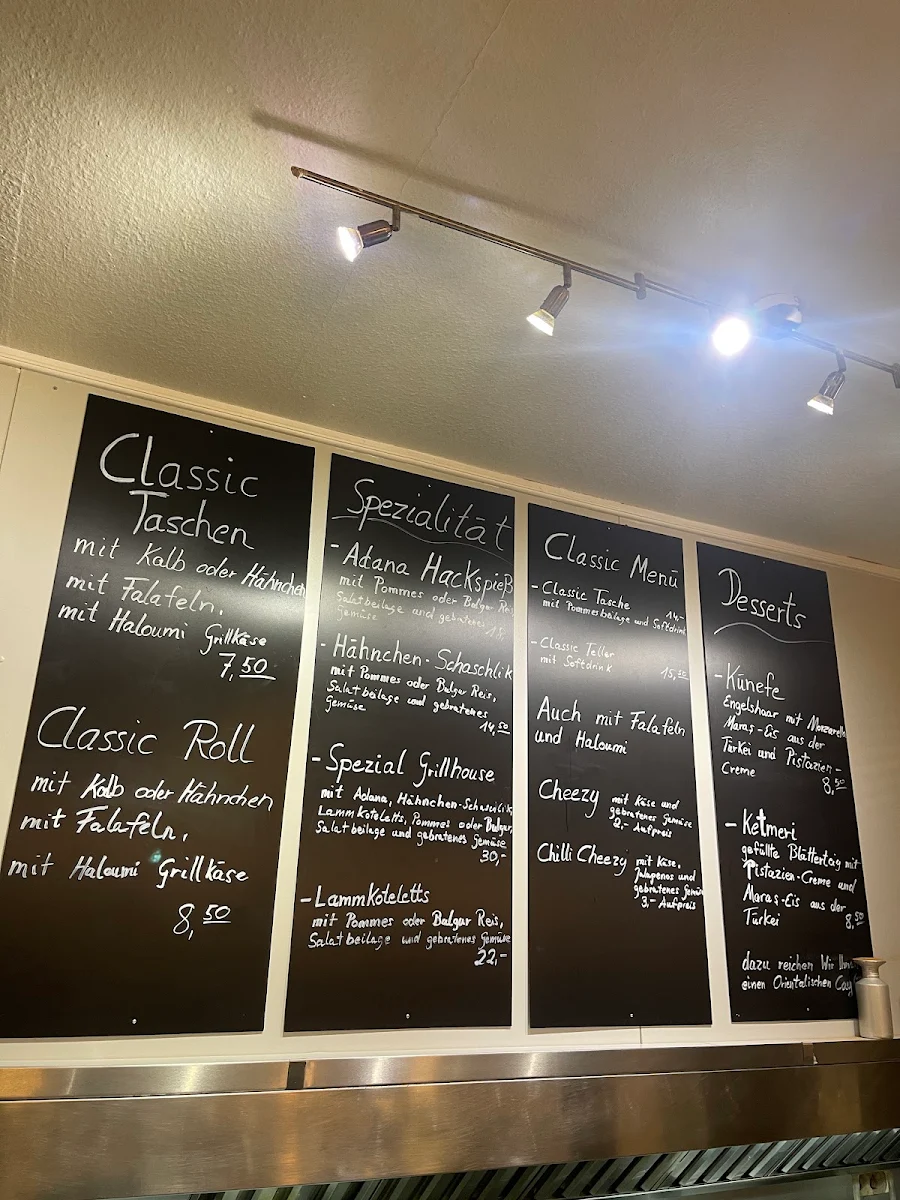 Classic
Taschen
mit Kalb oder Hähnchen
mit Falafeln,
mit Haloumi Grillkäse
7,50
Classic Roll
mit Kalb oder Hähnchen
mit Falafeln,
mit Haloumi Grillkäse
8,50
Spezialität
- Adana Hackspieß
mit Pommes oder Bulgur
Salatbeilage und gebratenes
Gemüse
- Hähnchen-Schaschlik
mit Pommes oder Bulgur Reis,
Salatbeilage und gebratenes
Gemüse
14,50
- Spezial Grillhouse
mit Adana, Hähnchen-Schaschlik
Lammkoteletts, Pommes oder Bulgur,
Salatbeilage und gebratenes Gemüse
30,-
- Lammkoteletts
mit Pommes oder Bulgur Reis,
Salatbeilage und gebratenes Gemüse
22,-
Classic Menü
- Classic Tasche 14,-
mit Pommesbeilage und Softdrink
- Classic Teller
mit Softdrink 15,50
Auch mit Falafeln
und Haloumi
Cheezy mit Käse und
gebratenes Gemüse
2,- Aufpreis
Chilli Cheezy mit Käse,
Jalapenos und
gebratenes Gemüse
3,- Aufpreis
Desserts
- Künefe
Engelshaar mit Mozzarella
Maraş-Eis aus der
Türkei und Pistazien-
Creme
8,50
- Ketmeri
gefüllte Blätterteig mit
Pistazien-Creme und
Maraş-Eis aus der
Türkei 8,50
dazu reichen Wir
einen Orientalischen